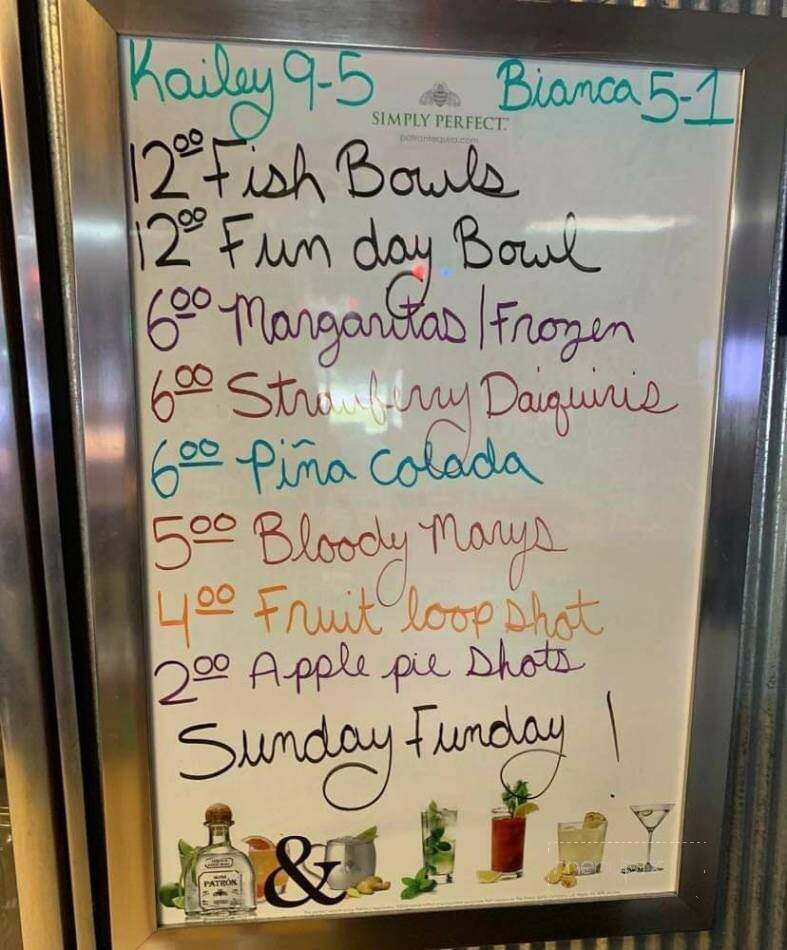 Kailey 9-5 Bianca 5-1
SIMPLY PERFECT.
patrontequila.com
12⁰⁰ Fish Bowls
12⁰⁰ Fun day Bowl
6⁰⁰ Margaritas/Frozen
6⁰⁰ Strawberry Daiquiris
6⁰⁰ Piña Colada
5⁰⁰ Bloody Marys
4⁰⁰ Fruit loop shot
2⁰⁰ Apple pie shots
Sunday Funday!
PATRÓN
&